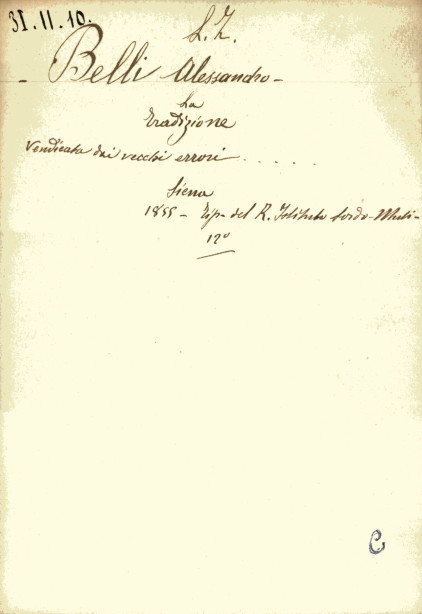 31.11.10.
L. Z.
- Belli Alessandro -
La
Tradizione
vendicata dai vecchi errori . . . . .
Siena
1855 - Tip. del R. Istituto Sordo-Muti -
12°
C